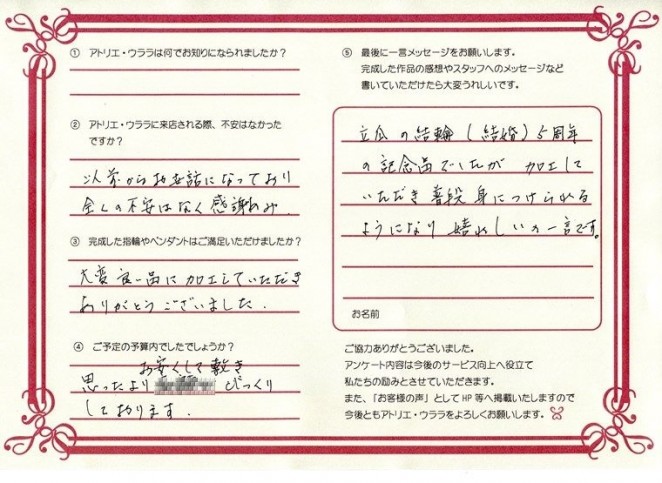 ① アトリエ・ウララは何でお知りになられましたか?
② アトリエ・ウララに来店される際、不安はなかった
ですか?
以前からお世話になっており
全くの不安はなく感謝のみ.
③ 完成した指輪やペンダントはご満足いただけましたか?
大変良い品に加工していただき
ありがとうございました.
④ ご予定の予算内でしたでしょうか?
お安くして戴き
思ったより びっくり
しております.
⑤ 最後に一言メッセージをお願いします。
完成した作品の感想やスタッフへのメッセージなど
書いていただけたら大変うれしいです。
の結輪(結婚)5周年
の記念品でしたが 加工して
いただき普段身につけられる
ようになり 嬉れしいの一言です。
お名前
ご協力ありがとうございました。
アンケート内容は今後のサービス向上へ役立て
私たちの励みとさせていただきます。
また、「お客様の声」としてHP等へ掲載いたしますので
今後ともアトリエ・ウララをよろしくお願いします。